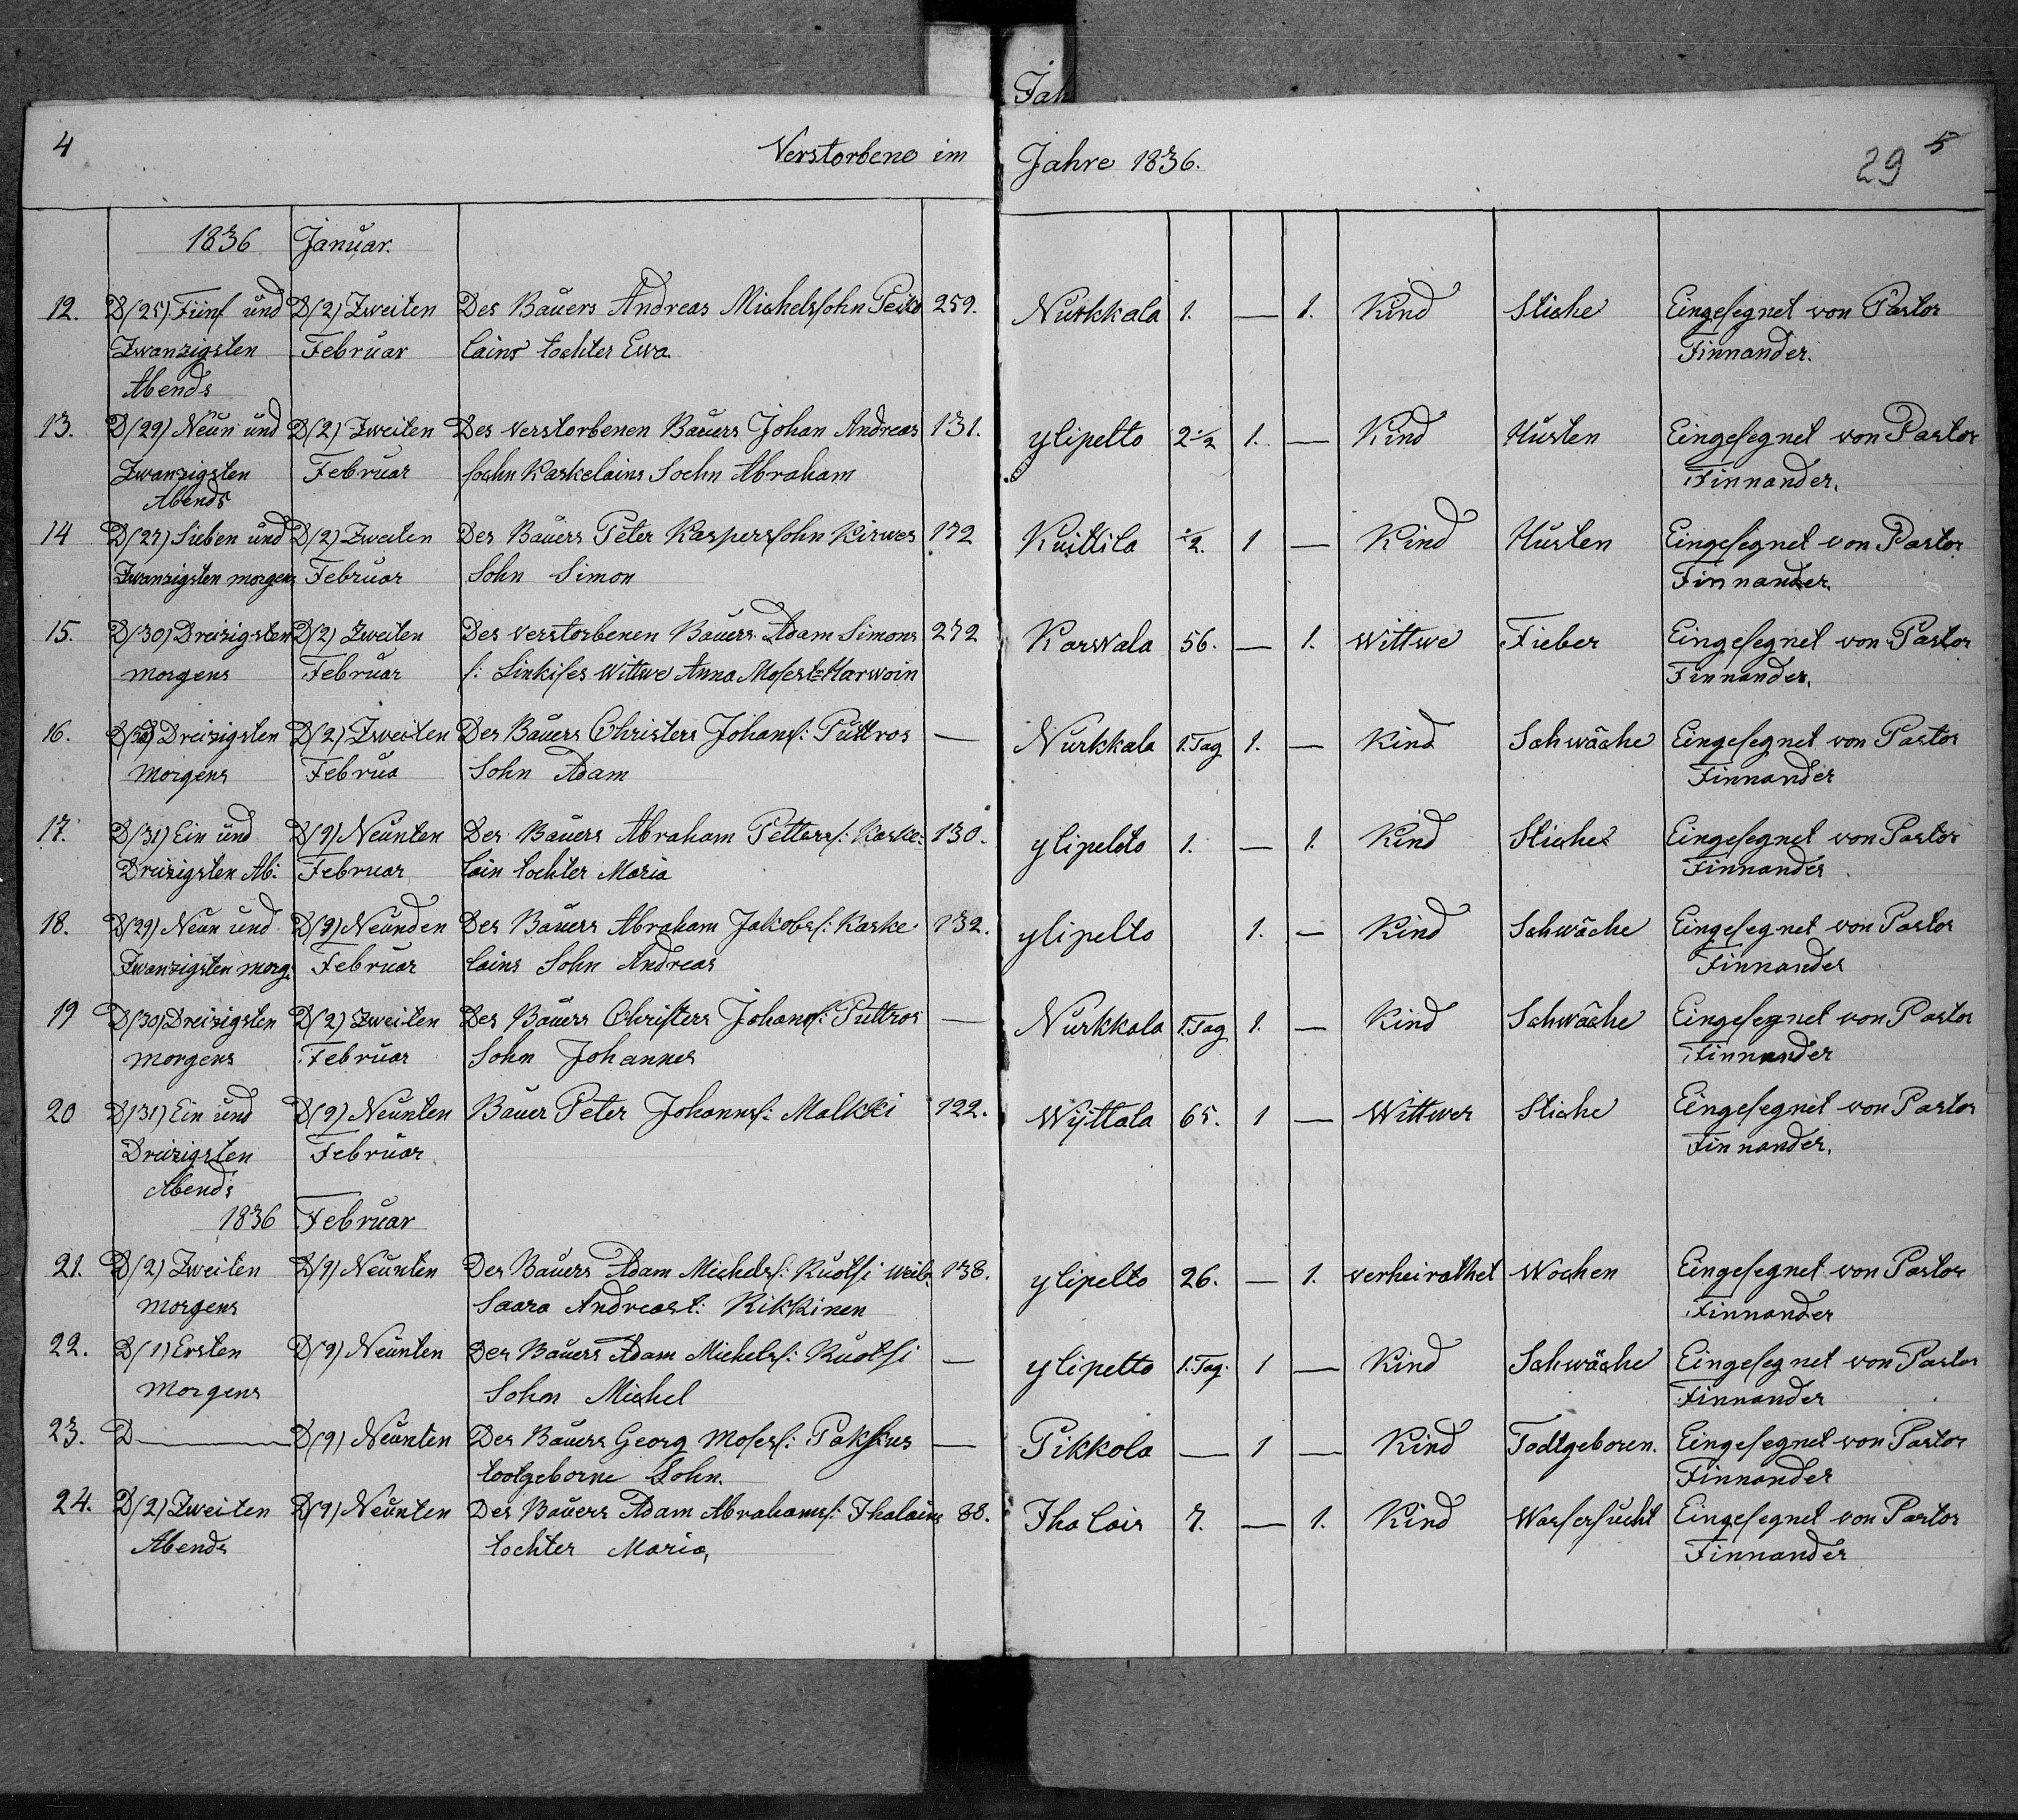 Jah
4 Verstorbene im Jahre 1836. 29 5
1836 Januar.
12. D(25) Fünf und D(2) Zweiten Des Bauers Andreas Michelssohn Peiko 259. Nurkkala 1. — 1. Kind Stiche Eingesegnet von Pastor
Zwanzigsten Februar lains tochter Ewa Finnander.
Abends
13. D(29) Neun und D(2) Zweiten Des verstorbenen Bauers Johan Andreas 131. ylipelto 2 1/2 1. — Kind Husten Eingesegnet von Pastor
Zwanzigsten Februar soehn Kaskelains Soehn Abraham Finnander.
Abends
14 D(27) Sieben und D(2) Zweiten Des Bauers Peter Kasperssohn Kirwes 172 Kuittila 1/2. 1 — Kind Husten Eingesegnet von Pastor
Zwanzigsten morgens Februar Sohn Simon Finnander.
15. D(30) Dreizigsten D(2) Zweiten Des verstorbenen Bauers Adam Simons 272 Karvala 56. — 1. Wittwe Fieber Eingesegnet von Pastor
morgens Februar s: Sinkises Wittwe Anna Mosest: Harwoin Finnander.
16. D(30) Dreizigsten D(2) Zweiten Des Bauers Christers Johans: Puttros — Nurkkala 1. Tag 1. — Kind Schwäche Eingesegnet von Pastor
Morgens Februa Sohn Adam Finnander
17. D(31) Ein und D(9) Neunten Des Bauers Abraham Petterss: Kaske: 130. ylipeldo 1. — 1. Kind Stiche Eingesegnet von Pastor
Dreizigsten Ab: Februar lain tochter Maria Finnander
18. D(29) Neun und D(9) Neunden Des Bauers Abraham Jakobs: Kaske 132. ylipelto 1. — Kind Schwäche Eingesegnet von Pastor
Zwanzigsten morg. Februar lains Sohn Andreas Finnander
19 D(30) Dreizigsten D(2) Zweiten Des Bauers Christers Johans: Puttros — Nurkkala 1. Tag 1. — Kind Schwäche Eingesegnet von Pastor
morgens Februar Sohn Johannes Finnander
20 D(31) Ein und D(9) Neunten Bauer Peter Johanns: Malkki 122. Wijttala 65. 1 — Wittwer Stiche Eingesegnet von Pastor
Dreizigsten Februar Finnander.
Abends
1836 Februar
21. D(2) Zweiten D(9) Neunten Des Bauers Adam Michels: Ruotsi Weib: 138. ylipelto 26. — 1. verheirathet Wochen Eingesegnet von Pastor
morgens Saara Andreast: Kikkinen Finnander
22. D(1) Ersten D(9) Neunten Des Bauers Adam Michels: Ruotsi — ylipelto 1. Tag. 1 — Kind Schwäche Eingesegnet von Pastor
Morgens Sohn Michel Finnander
23. D— D(9) Neunten Des Bauers Georg Moses: Pakkus — Pikkola — 1 — Kind Todtgeboren. Eingesegnet von Pastor
tootgeborne Sohn. Finnander
24. D(2) Zweiten D(9) Neunten Des Bauers Adam Abrahams: Ihalains 88. Ihalais 7. — 1. Kind Wassersucht Eingesegnet von Pastor
Abends tochter Maria, Finnander